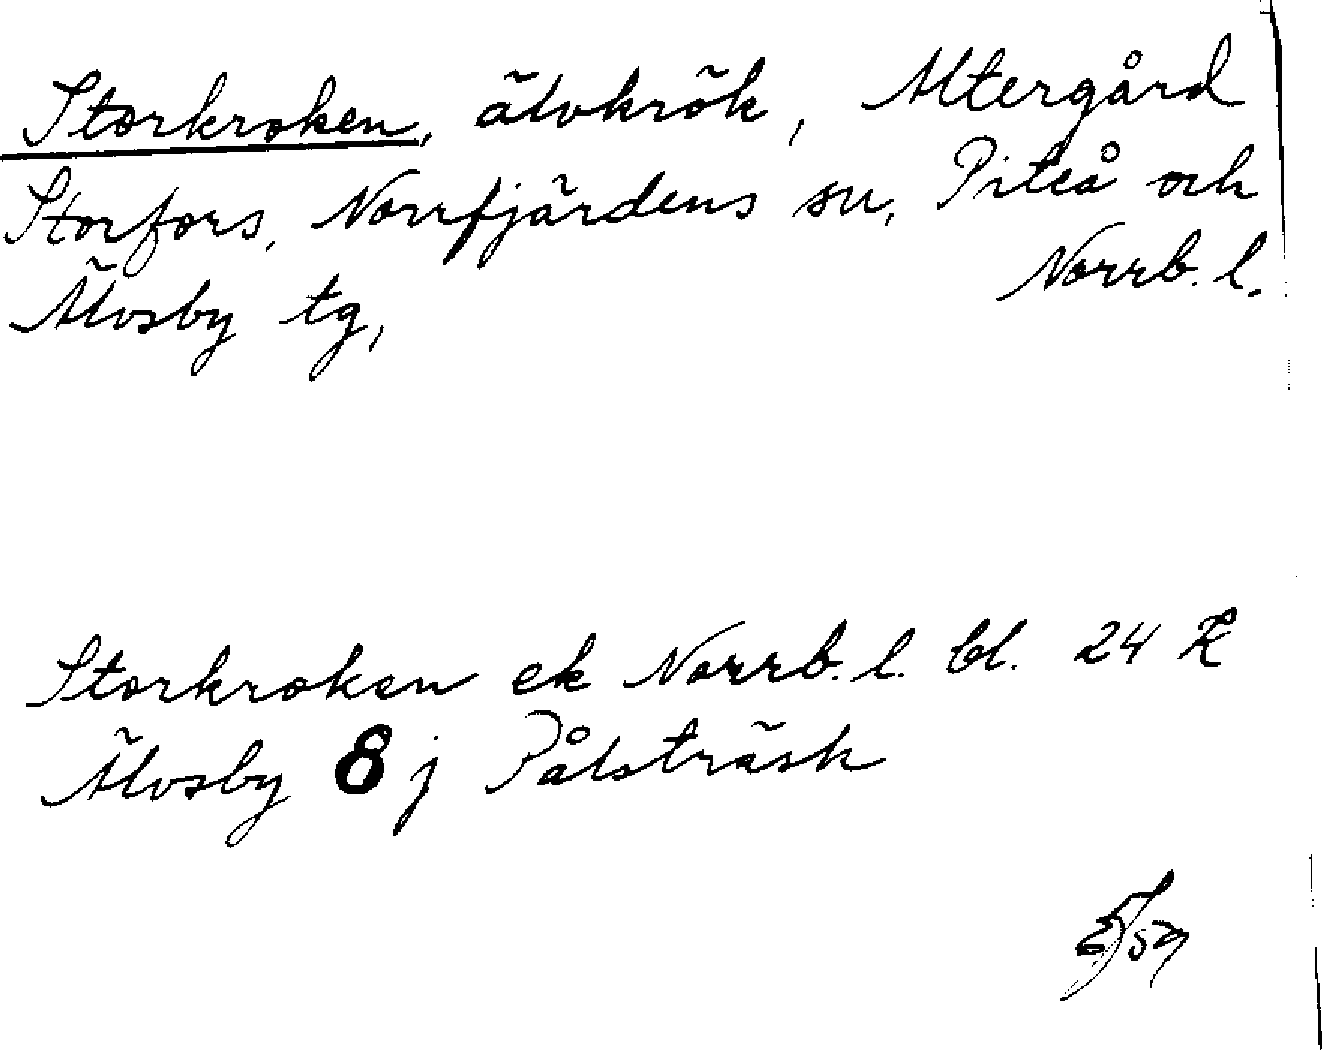 Storkroken, älvkrök, Altergård
Storfors, Norrfjärdens sn, Piteå och
Älvsby tg, Norrb. l.
Storkroken ek Norrb. l. bl. 24 K
Älvsby 8 j Pålsträsk